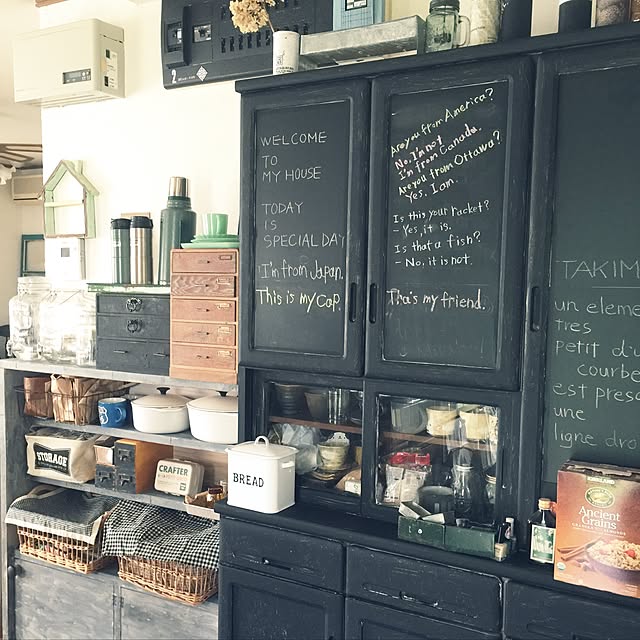 WELCOME
TO
MY HOUSE
TODAY
IS
SPECIAL DAY
I'm from Japan.
This is my Cap.
Are you from America?
No, I'm not
I'm from Canada.
Are you from Ottawa?
Yes. I am.
Is this your racket?
- Yes, it is.
Is that a fish?
- No, it is not.
Tha's my friend.
TAKIM
un eleme
tres
petit d'u
courbe
est presq
une
ligne dro
STORAGE
CRAFTER
BREAD
Ancient
Grains
2